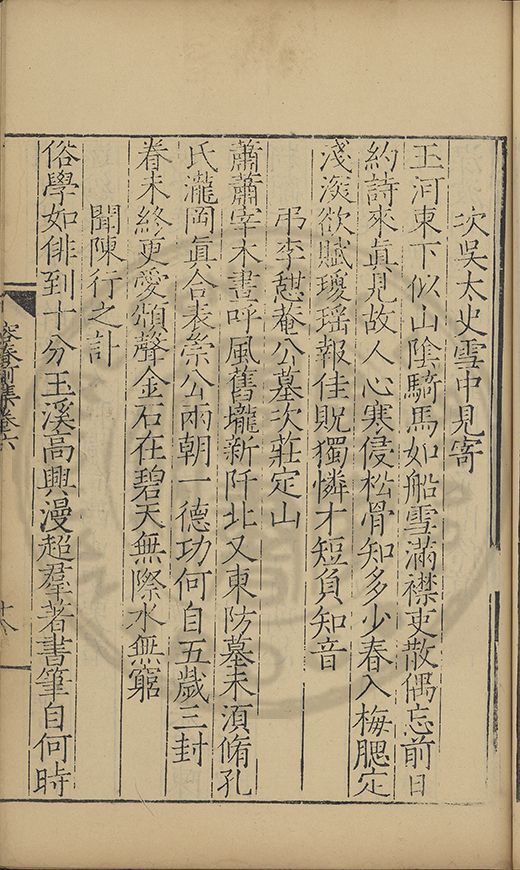 次吳太史雪中見寄
玉河東下似山陰騎馬如船雪滿襟吏散偶忘前日
約詩來眞見故人心寒侵松骨知多少春入梅腮定
淺深欲賦瓊瑶報佳貺獨憐才短負知音
弔李憇菴公墓次莊定山
蕭蕭宰木晝呼風舊壠新阡北又東防墓未湏脩孔
氏瀧岡眞合表崇公兩朝一德功何自五歲三封
眷未終更愛頌聲金石在碧天無際水無窮
聞陳行之訃
俗學如俳到十分玉溪高興漫超羣著書筆自何時
容春前集卷六
十八